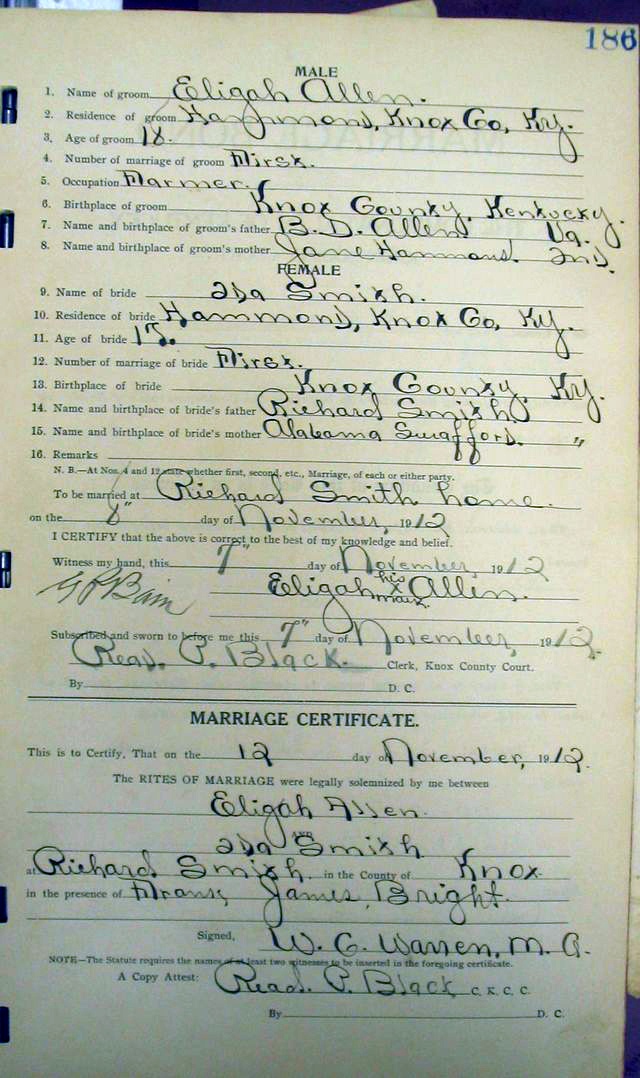 186
MALE
1. Name of groom Eligah Allen.
2. Residence of groom Hammond, Knox Co, Ky.
3. Age of groom 18.
4. Number of marriage of groom First.
5. Occupation Farmer.
6. Birthplace of groom Knox County, Kentucky.
7. Name and birthplace of groom's father B. D. Allen Va.
8. Name and birthplace of groom's mother Jane Hammons. Ind.
FEMALE
9. Name of bride Ida Smith.
10. Residence of bride Hammond, Knox Co, Ky.
11. Age of bride
12. Number of marriage of bride First.
13. Birthplace of bride Knox County, Ky.
14. Name and birthplace of bride's father Richard Smith
15. Name and birthplace of bride's mother Alabama Swafford. "
16. Remarks
N. B.—At Nos. 4 and 12 state whether first, second, etc., Marriage, of each or either party.
To be married at Richard Smith home.
on the 8" day of November, 1912
I CERTIFY that the above is correct to the best of my knowledge and belief.
Witness my hand, this 7" day of November, 1912
Eligah his x mark Allen.
Bain
Subscribed and sworn to before me this 7" day of November, 1912.
Read. P. Black. Clerk, Knox County Court.
By D. C.
MARRIAGE CERTIFICATE.
This is to Certify, That on the 12 day of November, 1912.
The RITES OF MARRIAGE were legally solemnized by me between
Eligah Allen.
AND
Ida Smith
at Richard Smith. in the County of Knox
in the presence of James, Bright.
Signed, W. C. Warren, M. G.
NOTE—The Statute requires the names of at least two witnesses to be inserted in the foregoing certificate.
A Copy Attest: Read. P. Black C. K. C. C.
By D. C.